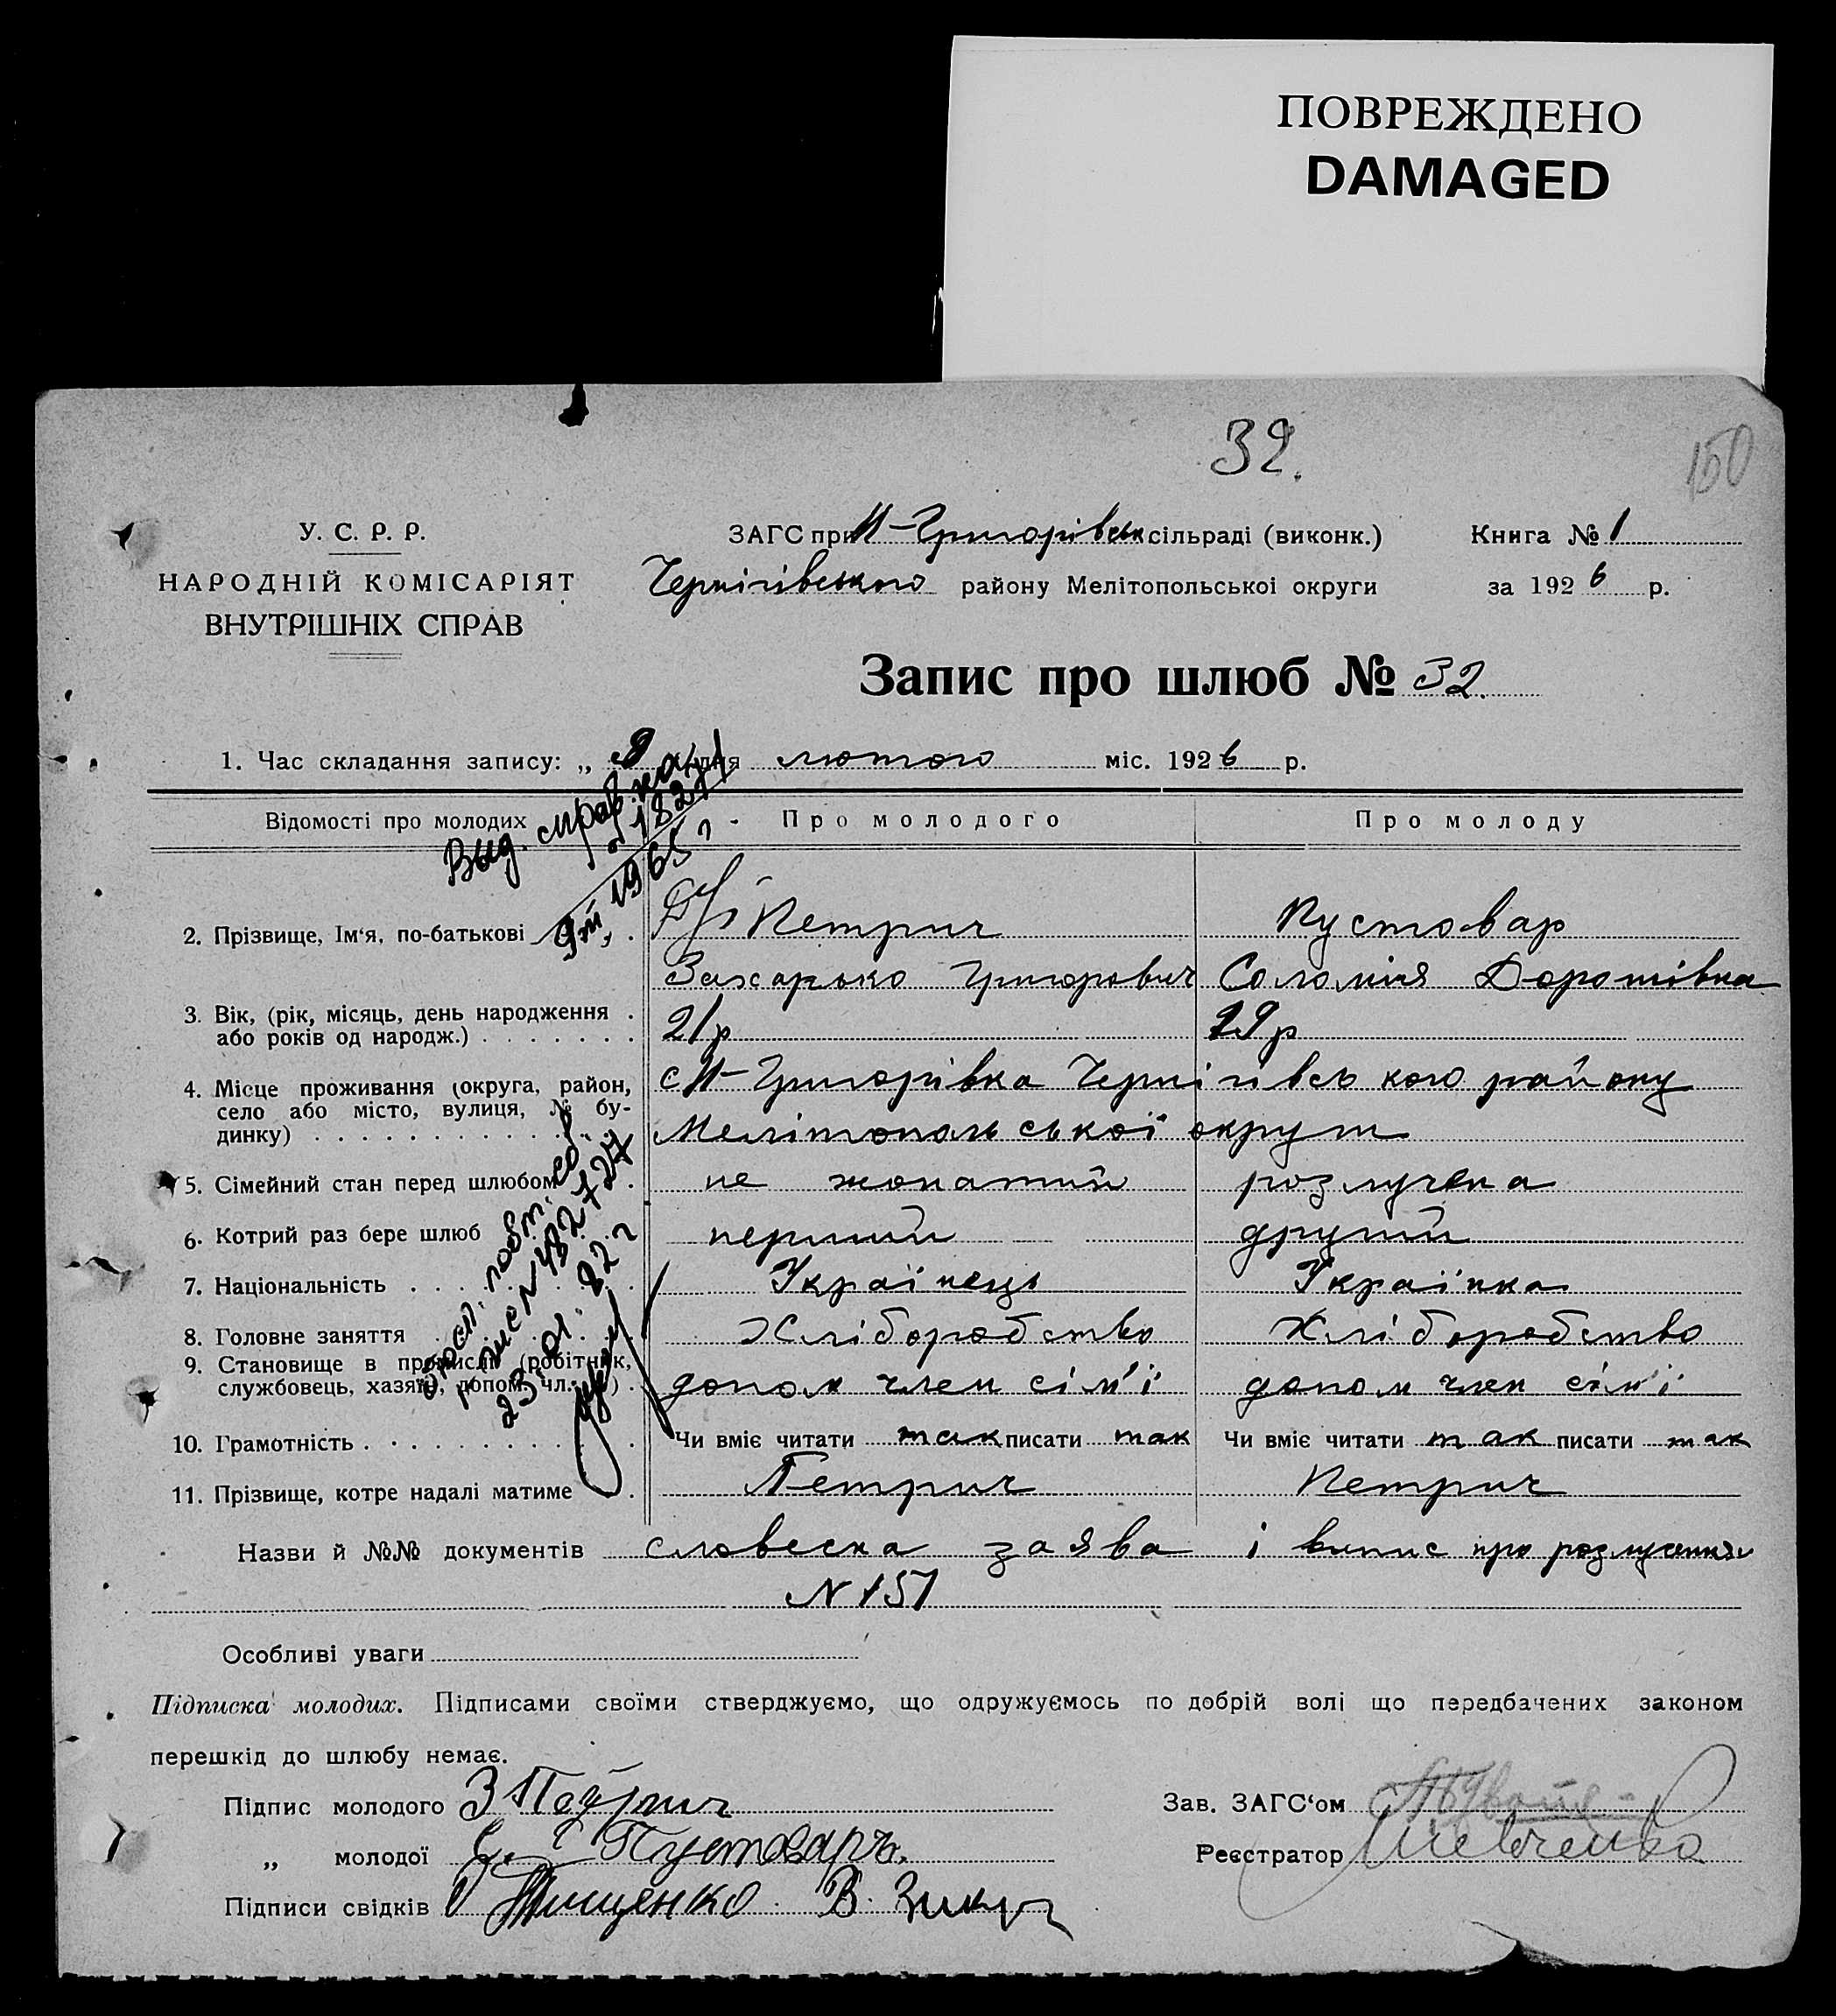 ПОВРЕЖДЕНО
DAMAGED
32.
150
У. С. Р. Р.
НАРОДНІЙ КОМІСАРІЯТ
ВНУТРІШНІХ СПРАВ
ЗАГС при Н-Григорівськ сільраді (виконк.)
Чернігівського району Мелітопольської округи
Книга № 1
за 1926 р.
Запис про шлюб № 32.
1. Час складання запису: „ дня лютого міс. 1926 р.
Выд. справка
1965 г
Відомості про молодих
Про молодого
Про молоду
2. Прізвище, Ім'я, по-батькові
Петрич
Пустовар
Захарько Григорович
Соломія Доротівна
3. Вік, (рік, місяць, день народження
або років од народж.)
21 р
29 р
4. Місце проживання (округа, район,
село або місто, вулиця, № бу-
динку)
с Н-Григорівка Чернігівського району
Мелітопольської округи
5. Сімейний стан перед шлюбом
не жонатий
розлучена
6. Котрий раз бере шлюб
перший
другий
7. Національність
Українець
Українка
8. Головне заняття
Хліборобство
Хліборобство
9. Становище в промислі (робітник,
службовець, хазяїн, допом. чл. )
допом член сім'ї
допом член сім'ї
10. Грамотність
Чи вміє читати так писати так
Чи вміє читати так писати так
11. Прізвище, котре надалі матиме
Петрич
Петрич
Назви й №№ документів словесна заява і випис про розлучення
N 151
Особливі уваги
Підписка молодих. Підписами своїми стверджуємо, що одружуємось по добрій волі що передбачених законом
перешкід до шлюбу немає.
Підпис молодого З Петрич
Зав. ЗАГС'ом
„ молодої Пустоваръ.
Реєстратор Шевченко
Підписи свідків Тищенко В.